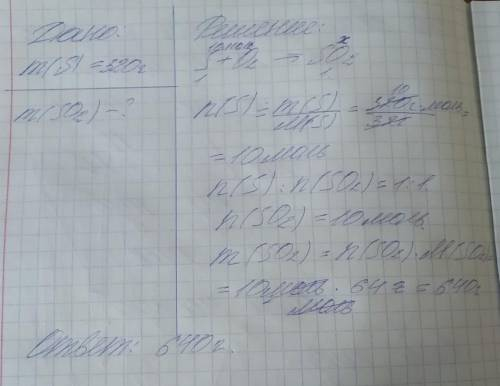 Дано:
m(S) = 320г
m(SO₂) - ?
Решение:
10моль x
S + O₂ → SO₂
1 1
n(S) = m(S)/M(S) = 320г·моль/32г =
10
= 10 моль
n(S) : n(SO₂) = 1:1
n(SO₂) = 10 моль
m(SO₂) = n(SO₂)·M(SO₂)
= 10 моль · 64 г/моль = 640г
Ответ: 640г.